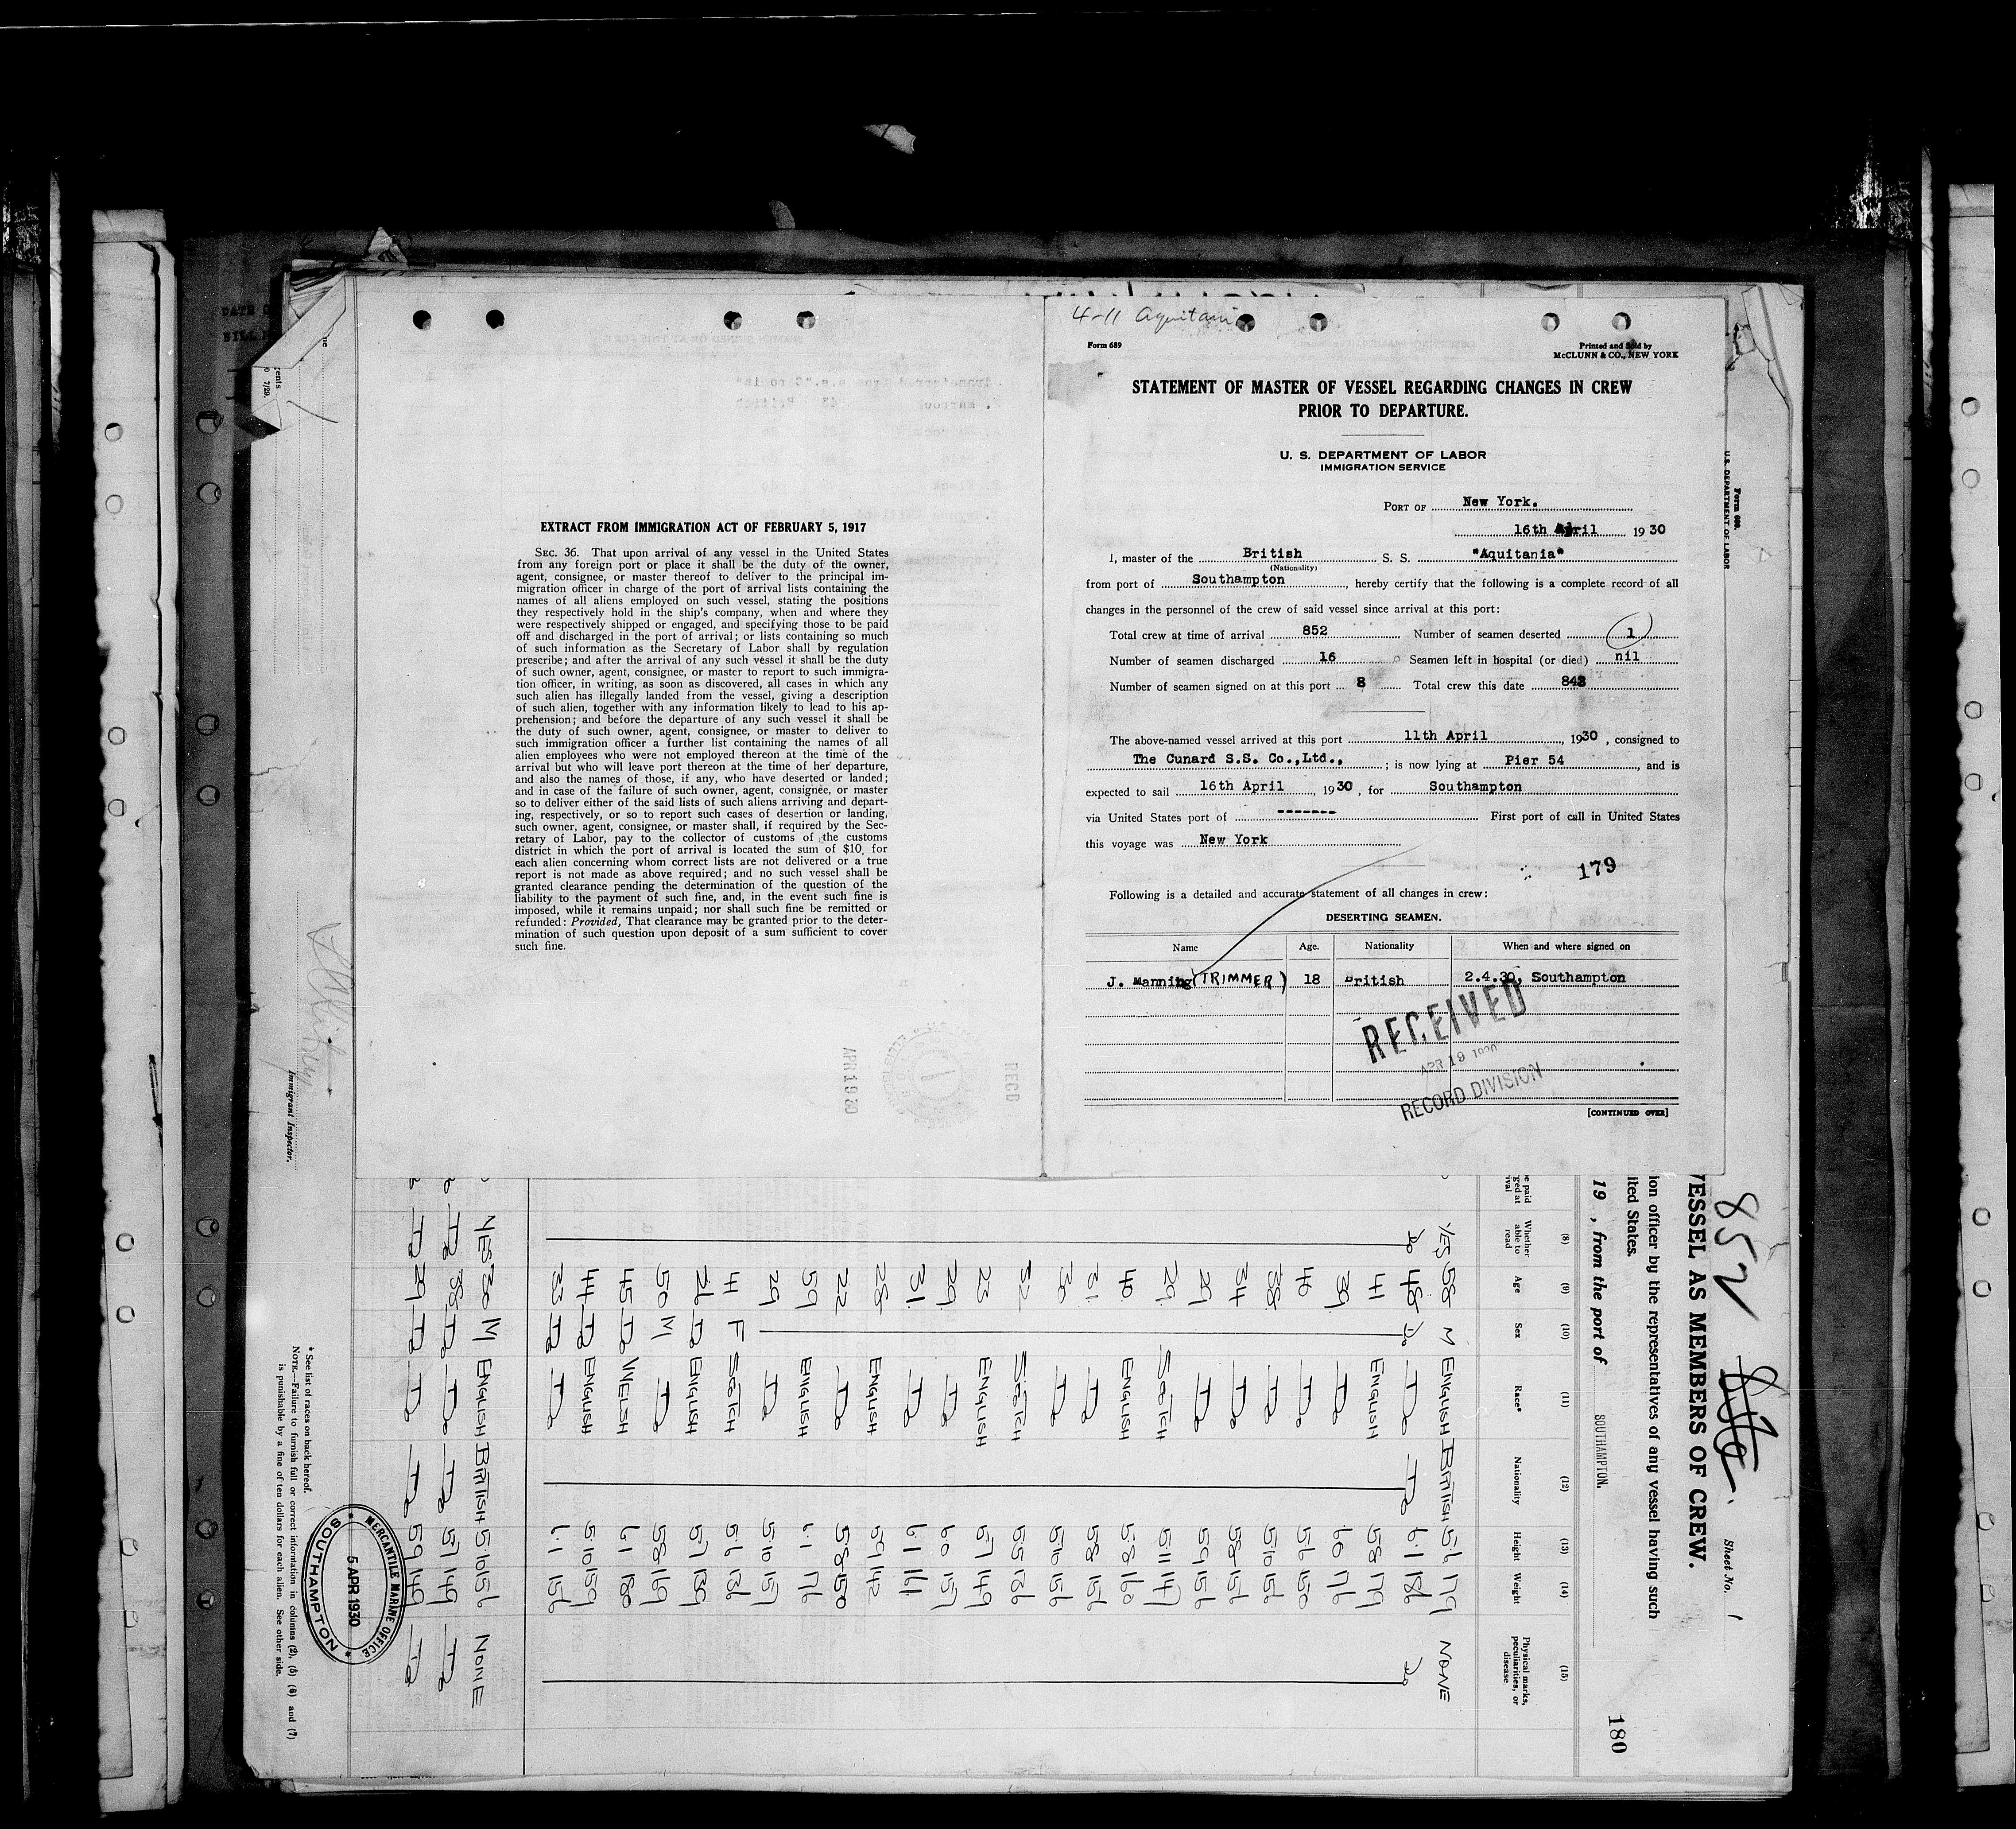 4-11 Aquitania
Form 689
Printed and Sold by
McCLUNN & CO., NEW YORK
STATEMENT OF MASTER OF VESSEL REGARDING CHANGES IN CREW
PRIOR TO DEPARTURE.
U. S. DEPARTMENT OF LABOR
IMMIGRATION SERVICE
PORT OF New York.
16th April 1930
I, master of the British S. S. "Aquitania"
(Nationality)
from port of Southampton, hereby certify that the following is a complete record of all
changes in the personnel of the crew of said vessel since arrival at this port:
Total crew at time of arrival 852 Number of seamen deserted 1
Number of seamen discharged 16 Seamen left in hospital (or died) nil
Number of seamen signed on at this port 8 Total crew this date 843
The above-named vessel arrived at this port 11th April, 1930, consigned to
The Cunard S.S. Co.,Ltd., ; is now lying at Pier 54, and is
expected to sail 16th April, 1930, for Southampton
via United States port of ------- First port of call in United States
this voyage was New York
179
Following is a detailed and accurate statement of all changes in crew:
DESERTING SEAMEN.
Name Age. Nationality When and where signed on
J. Manning (TRIMMER) 18 British 2.4.30, Southampton
RECEIVED
APR 19 1930
RECORD DIVISION
[CONTINUED OVER]
EXTRACT FROM IMMIGRATION ACT OF FEBRUARY 5, 1917
SEC. 36. That upon arrival of any vessel in the United States
from any foreign port or place it shall be the duty of the owner,
agent, consignee, or master thereof to deliver to the principal im-
migration officer in charge of the port of arrival lists containing the
names of all aliens employed on such vessel, stating the positions
they respectively hold in the ship's company, when and where they
were respectively shipped or engaged, and specifying those to be paid
off and discharged in the port of arrival; or lists containing so much
of such information as the Secretary of Labor shall by regulation
prescribe; and after the arrival of any such vessel it shall be the duty
of such owner, agent, consignee, or master to report to such immigra-
tion officer, in writing, as soon as discovered, all cases in which any
such alien has illegally landed from the vessel, giving a description
of such alien, together with any information likely to lead to his ap-
prehension; and before the departure of any such vessel it shall be
the duty of such owner, agent, consignee, or master to deliver to
such immigration officer a further list containing the names of all
alien employees who were not employed thereon at the time of the
arrival but who will leave port thereon at the time of her departure,
and also the names of those, if any, who have deserted or landed;
and in case of the failure of such owner, agent, consignee, or master
so to deliver either of the said lists of such aliens arriving and depart-
ing, respectively, or so to report such cases of desertion or landing,
such owner, agent, consignee, or master shall, if required by the Sec-
retary of Labor, pay to the collector of customs of the customs
district in which the port of arrival is located the sum of $10 for
each alien concerning whom correct lists are not delivered or a true
report is not made as above required; and no such vessel shall be
granted clearance pending the determination of the question of the
liability to the payment of such fine, and, in the event such fine is
imposed, while it remains unpaid; nor shall such fine be remitted or
refunded: Provided, That clearance may be granted prior to the deter-
mination of such question upon deposit of a sum sufficient to cover
such fine.
Form 689.
U.S. DEPARTMENT OF LABOR
852
Sheet No. 1
VESSEL AS MEMBERS OF CREW.
ion officer by the representatives of any vessel having such
ited States.
19 , from the port of SOUTHAMPTON.
180
(8) (9) (10) (11) (12) (13) (14) (15)
Whether able to read Age Sex Race* Nationality Height Weight Physical marks, peculiarities, or disease
YES 58 M ENGLISH BRITISH 5.6 179 NONE
Do 48 Do Do Do 6.1 186 Do
41 ENGLISH 5.8 179
39 Do 6.0 176
46 Do 5.6 150
38 Do 5.10 154
34 Do 5.8 154
29 Do 5.9 156
29 SCOTCH 5.11 147
40 ENGLISH 5.8 160
31 Do 5.8 154
36 Do 5.10 156
52 SCOTCH 5.5 136
23 ENGLISH 5.7 149
29 Do 6.0 157
31 Do 6.1 161
28 ENGLISH 5.9 142
22 Do 5.8 150
59 ENGLISH 6.1 176
29 Do 5.10 157
41 F SCOTCH 5.6 136
26 Do ENGLISH 5.7 139
50 M Do 5.8 169
45 Do WELSH 6.1 180
44 Do ENGLISH 5.10 159
33 Do Do 6.1 156
YES 30 M ENGLISH BRITISH 5.10 156 NONE
Do 38 Do Do Do 5.7 149 Do
Do 29 Do Do Do 5.9 149 Do
MERCANTILE MARINE OFFICE
5 APR 1930
SOUTHAMPTON
* See list of races on back hereof.
NOTE.—Failure to furnish full or correct information in columns (2), (5) (6) and (7)
is punishable by a fine of ten dollars for each alien. See other side.
Immigrant Inspector.